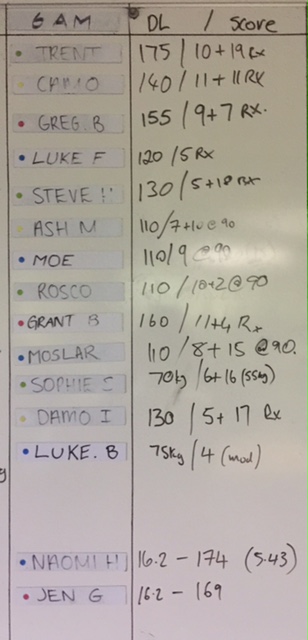 6 AM DL / Score
TRENT 175 / 10+19 Rx
CAMO 140 / 11+11 RX
GREG.B 155 / 9+7 RX.
LUKE F 120 / 5 Rx
STEVE H 130 / 5+18 Rx
ASH M 110/7+10 @ 90
MOE 110/9 @ 90
ROSCO 110 / 10+2 @ 90
GRANT B 160 / 11+4 Rx
MOSLAR 110 / 8+15 @ 90.
SOPHIE 70kg / 6+16 (55kg)
DAMO I 130 / 5+17 Rx
LUKE. B 75kg / 4 (mod)
NAOMI H 16.2 - 174 (5.43)
JEN G 16.2 - 169